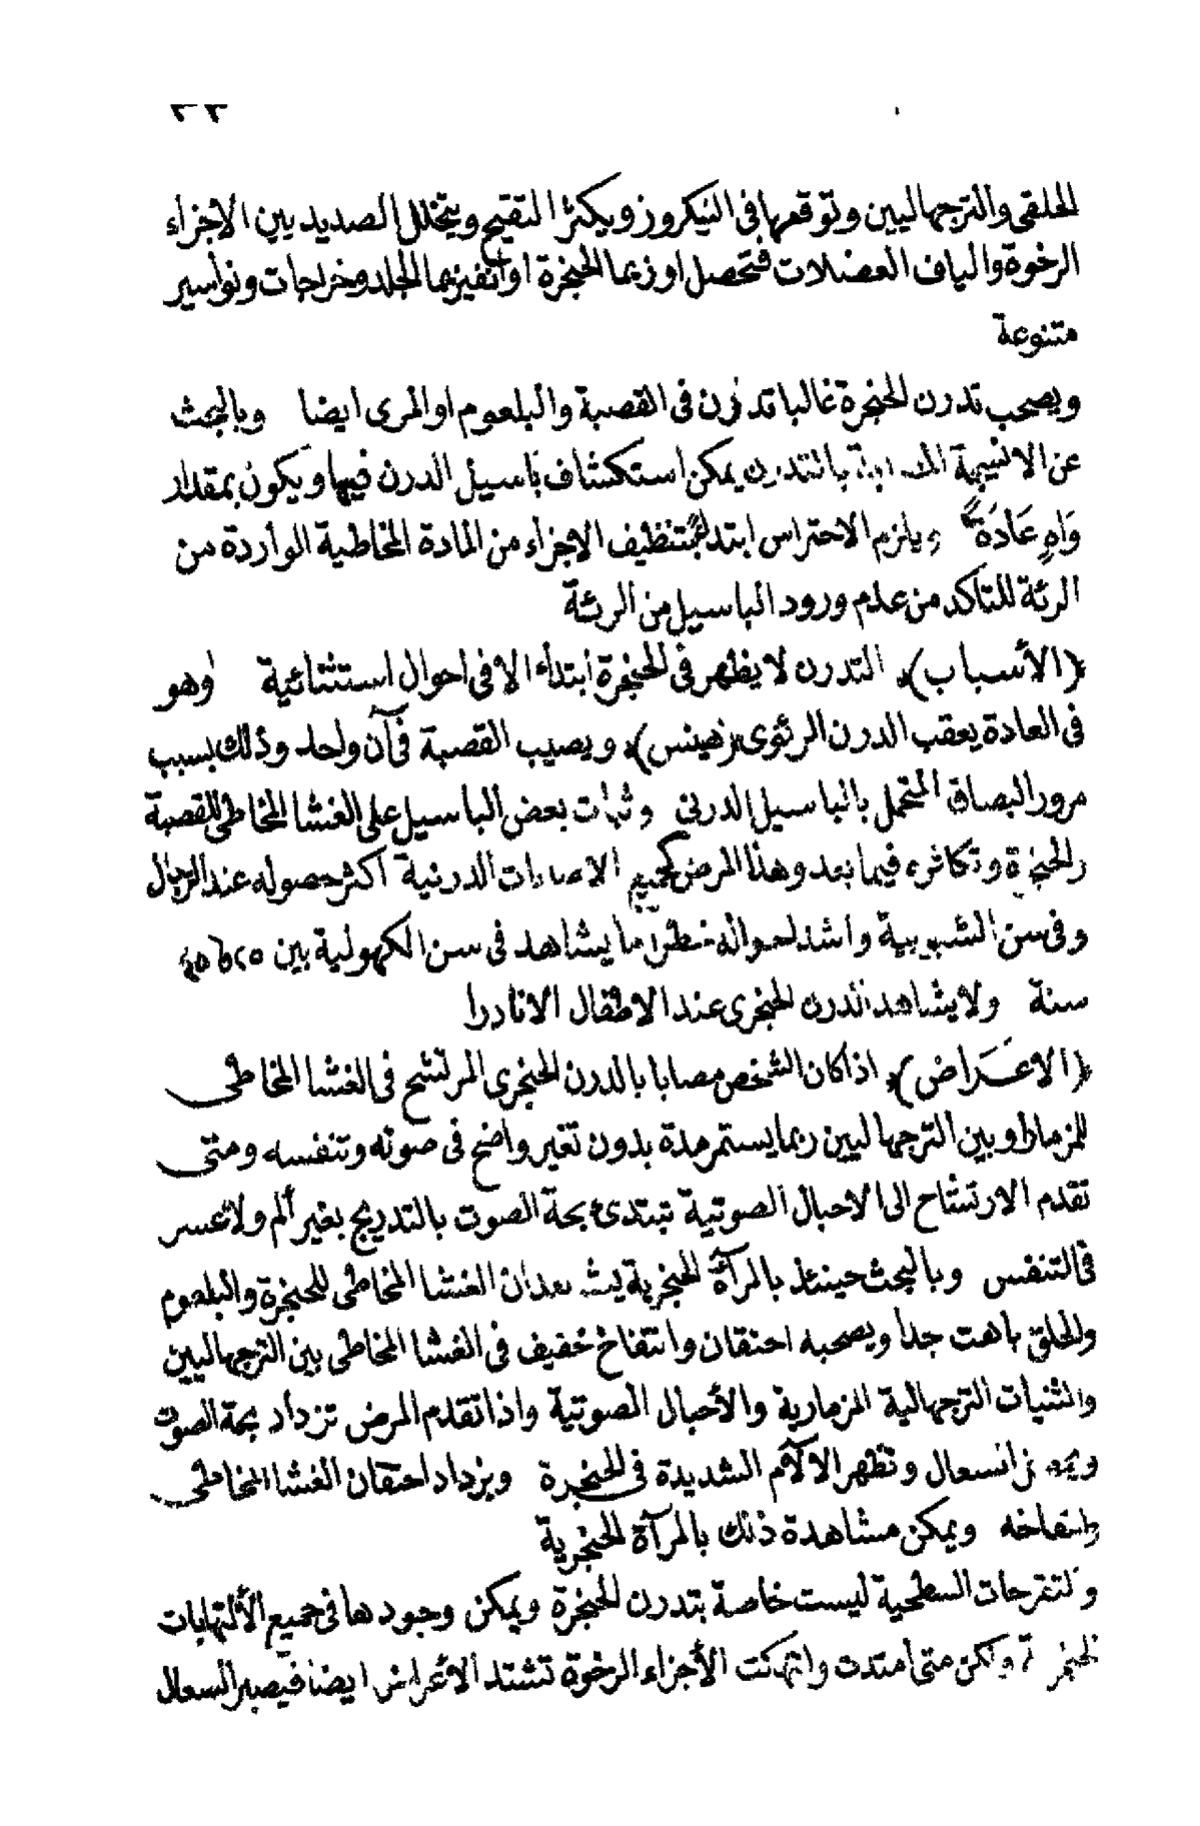 ٢٣
الحلقى والترجهاليين وتوقعها فى النيكروز ويكثر التقيح ويتخلل الصديد بين الاجزاء
الرخوة والياف العضلات فتحصل اوزيما الحنجرة او أنفيزيما الجلد وخراجات ونواسير
متنوعة
ويصحب تدرن الحنجرة غالبا تدرن فى القصبة والبلعوم او المرى ايضا وبالبحث
عن الانسجة المصابة بالتدرن يمكن استكشاف باسيل الدرن فيها ويكون بمقدار
وَاهٍ عَادَةً ويلزم الاحتراس ابتداء بتنظيف الاجزاء من المادة المخاطية الواردة من
الرئة للتأكد من عدم ورود الباسيل من الرئة
﴿الأسباب﴾ التدرن لا يظهر فى الحنجرة ابتداء الا فى احوال استثنائية وهو
فى العادة يعقب الدرن الرئوى ﴿زهينس﴾ ويصيب القصبة فى آن واحد وذلك بسبب
مرور البصاق المتحمل بالباسيل الدرنى وثبات بعض الباسيل على الغشا المخاطى للقصبة
والحنجرة وتكاثره فيما بعد وهذا المرض كجميع الاصابات الدرنية اكثر حصوله عند الرجال
وفى سن الشبوبية واشد احواله خطرا ما يشاهد فى سن الكهولية بين ٢٥ و ٤٥
سنة ولا يشاهد التدرن الحنجرى عند الاطفال الا نادرا
﴿الاعَرَاض﴾ اذا كان الشخص مصابا بالدرن الحنجرى المرتشح فى الغشا المخاطى
للمزمار او بين الترجهاليين ربما يستمر مدة بدون تغير واضح فى صوته وتنفسه ومتى
تقدم الارتشاح الى الاحبال الصوتية تبتدئ بحة الصوت بالتدريج بغير ألم ولا عسر
فى التنفس وبالبحث حينئذ بالمرآة الحنجرية يشاهد ان الغشا المخاطى للحنجرة والبلعوم
والحلق باهت جدا ويصحبه احتقان وانتفاخ خفيف فى الغشا المخاطى بين الترجهاليين
والثنيات الترجهالية المزمارية والأحبال الصوتية واذا تقدم المرض تزداد بحة الصوت
السعال وتظهر الآلام الشديدة فى الحنجرة ويزداد احتقان الغشا المخاطى
وانتفاخه ويمكن مشاهدة ذلك بالمرآة الحنجرية
والتقرحات السطحية ليست خاصة بتدرن الحنجرة ويمكن وجودها فى جميع الألتهابات
الحنجرية ولكن متى امتدت وانتهكت الأجزاء الرخوة تشتد الاعراض ايضا فيصير السعال